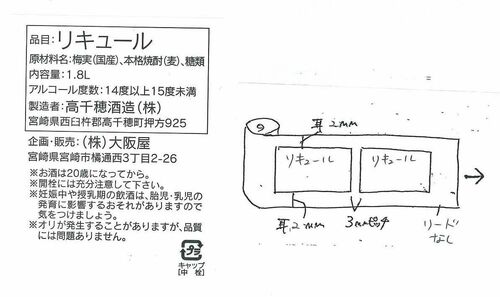 品目：リキュール
原材料名：梅実（国産）、本格焼酎（麦）、糖類
内容量：1.8L
アルコール度数：14度以上15度未満
製造者：高千穂酒造（株）
宮崎県西臼杵郡高千穂町押方925
企画・販売：（株）大阪屋
宮崎県宮崎市橘通西3丁目2-26
※お酒は20歳になってから。
※開栓には充分注意して下さい。
※妊娠中や授乳期の飲酒は、胎児・乳児の
発育に影響するおそれがありますので
気をつけましょう。
※オリが発生することがありますが、品質
には問題ありません。
プラ
キャップ
［中 栓］
耳 2mm
リキュール
リキュール
耳.2mm
3mmピッチ
リード
なし